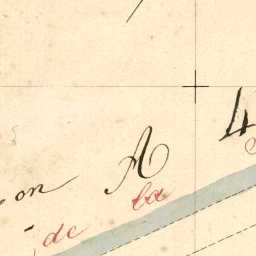 on A 4
de la